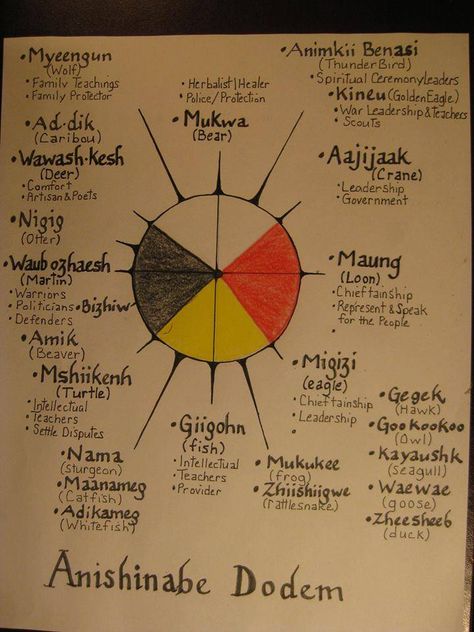 • Myeengun
(Wolf)
• Family Teachings
• Family Protector
• Ad·dik
(Caribou)
• Wawash·kesh
(Deer)
• Comfort
• Artisan & Poets
• Nigig
(Otter)
• Waub ozhaesh
(Martin)
• Warriors
• Politicians • Bizhiw
• Defenders
• Amik
(Beaver)
• Mshiikenh
(Turtle)
• Intellectual
• Teachers
• Settle Disputes
• Nama
(Sturgeon)
• Maanameg
(Catfish)
• Adikameg
(Whitefish)
• Herbalist/Healer
• Police/Protection
• Mukwa
(Bear)
• Giigohn
(fish)
• Intellectual
• Teachers
• Provider
• Animkii Benasi
(ThunderBird)
• Spiritual Ceremony Leaders
• Kineu (Golden Eagle)
• War Leadership & Teachers
• Scouts
• Aajijaak
(Crane)
• Leadership
• Government
• Maung
(Loon)
• Chieftainship
• Represent & Speak
for the People
• Migizi
(eagle)
• Chieftainship
• Leadership
• Mukukee
(frog)
• Zhiishiigwe
(rattlesnake)
• Gegek
(Hawk)
• Gookookoo
(Owl)
• Kayaushk
(Seagull)
• Waewae
(goose)
• Zheesheeb
(duck)
Anishinabe Dodem